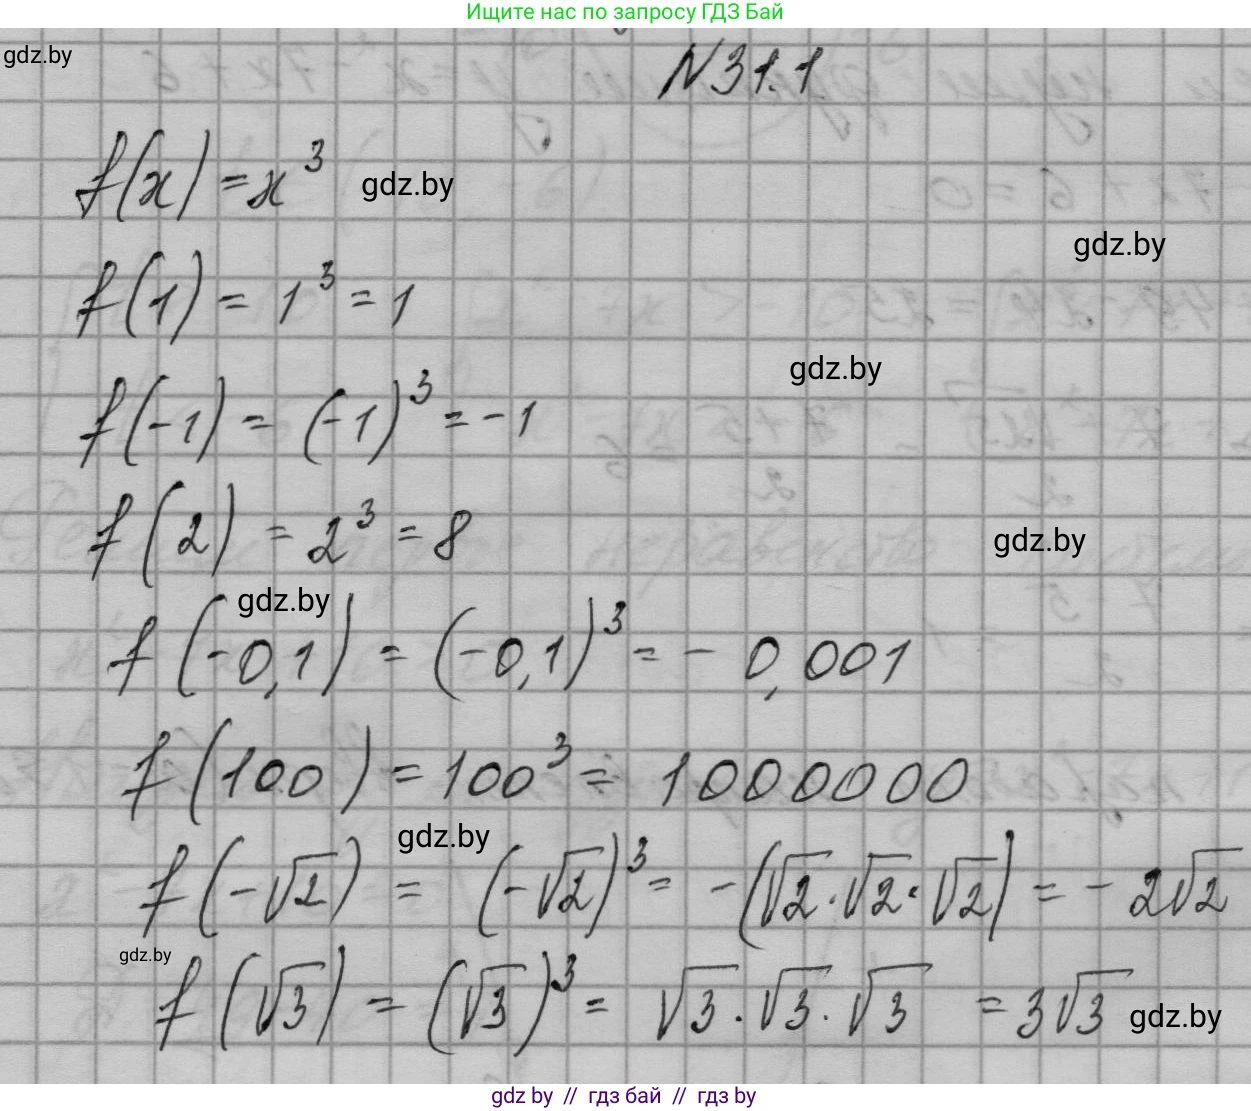 Ищите нас по запросу ГДЗ Бай
gdz.by
N31.1
f(x) = x³ gdz.by
gdz.by
f(1) = 1³ = 1
gdz.by
f(-1) = (-1)³ = -1
f(2) = 2³ = 8
gdz.by
gdz.by
f(-0,1) = (-0,1)³ = - 0,001
f(100) = 100³ = 1000000
gdz.by
f(-√2) = (-√2)³ = -(√2·√2·√2) = - 2√2
gdz.by
f(√3) = (√3)³ = √3·√3·√3 = 3√3 gdz.by
gdz.by // гдз бай // гдз by